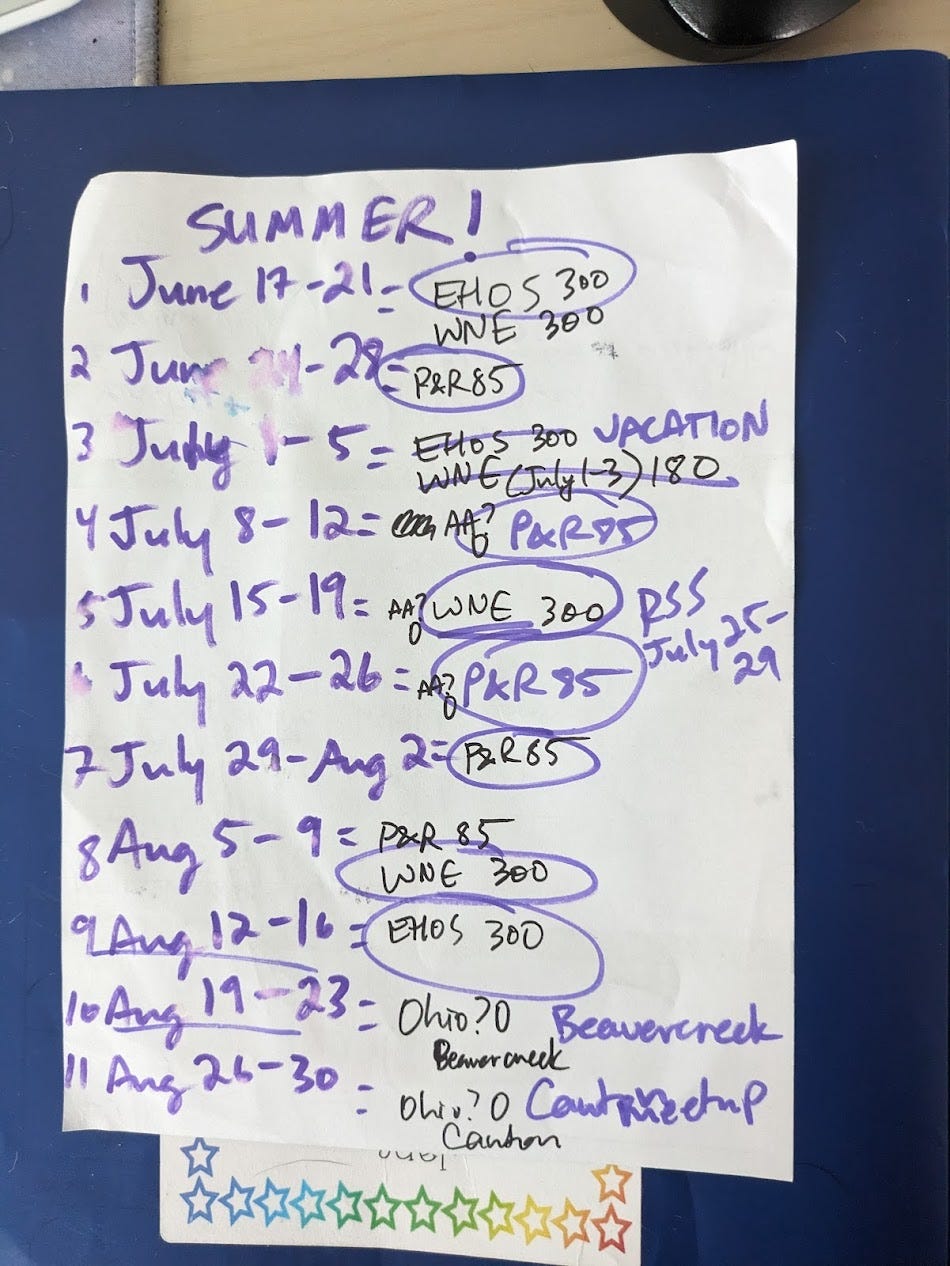 SUMMER!
1 June 17-21 = EHOS 300
WNE 300
2 June 24-28 = P&R85
3 July 1-5 = EHOS 300 VACATION
WNE (July 1-3) 180
4 July 8-12 = AA? 0 P&R85
5 July 15-19 = AA? 0 WNE 300 RSS
July 25-
29
6 July 22-26 = AA? 0 P&R 85
7 July 29-Aug 2 = P&R85
8 Aug 5-9 = P&R 85
WNE 300
9 Aug 12-16 = EHOS 300
10 Aug 19-23 = Ohio? 0 Beavercreek
Beavercreek
11 Aug 26-30 = Ohio? 0 meetup
Canton